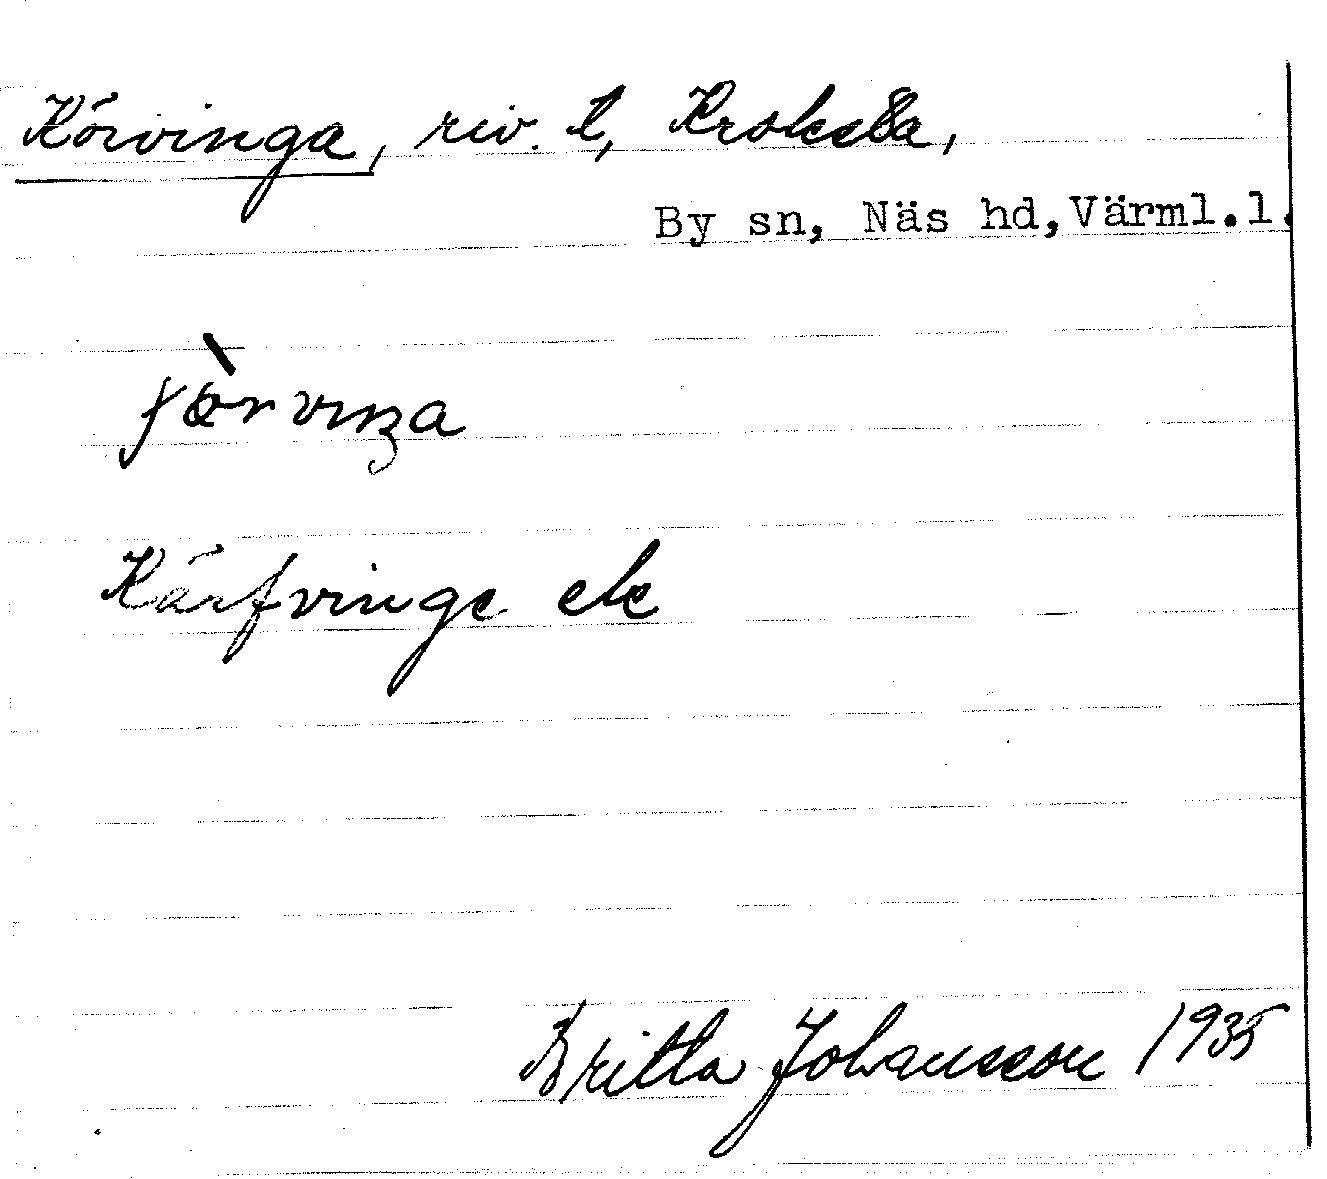 Körvinga, riv. t, Kroksta,
By sn, Näs hd, Värml.l.
Kärfvinge ek
Britta Johansson 1935